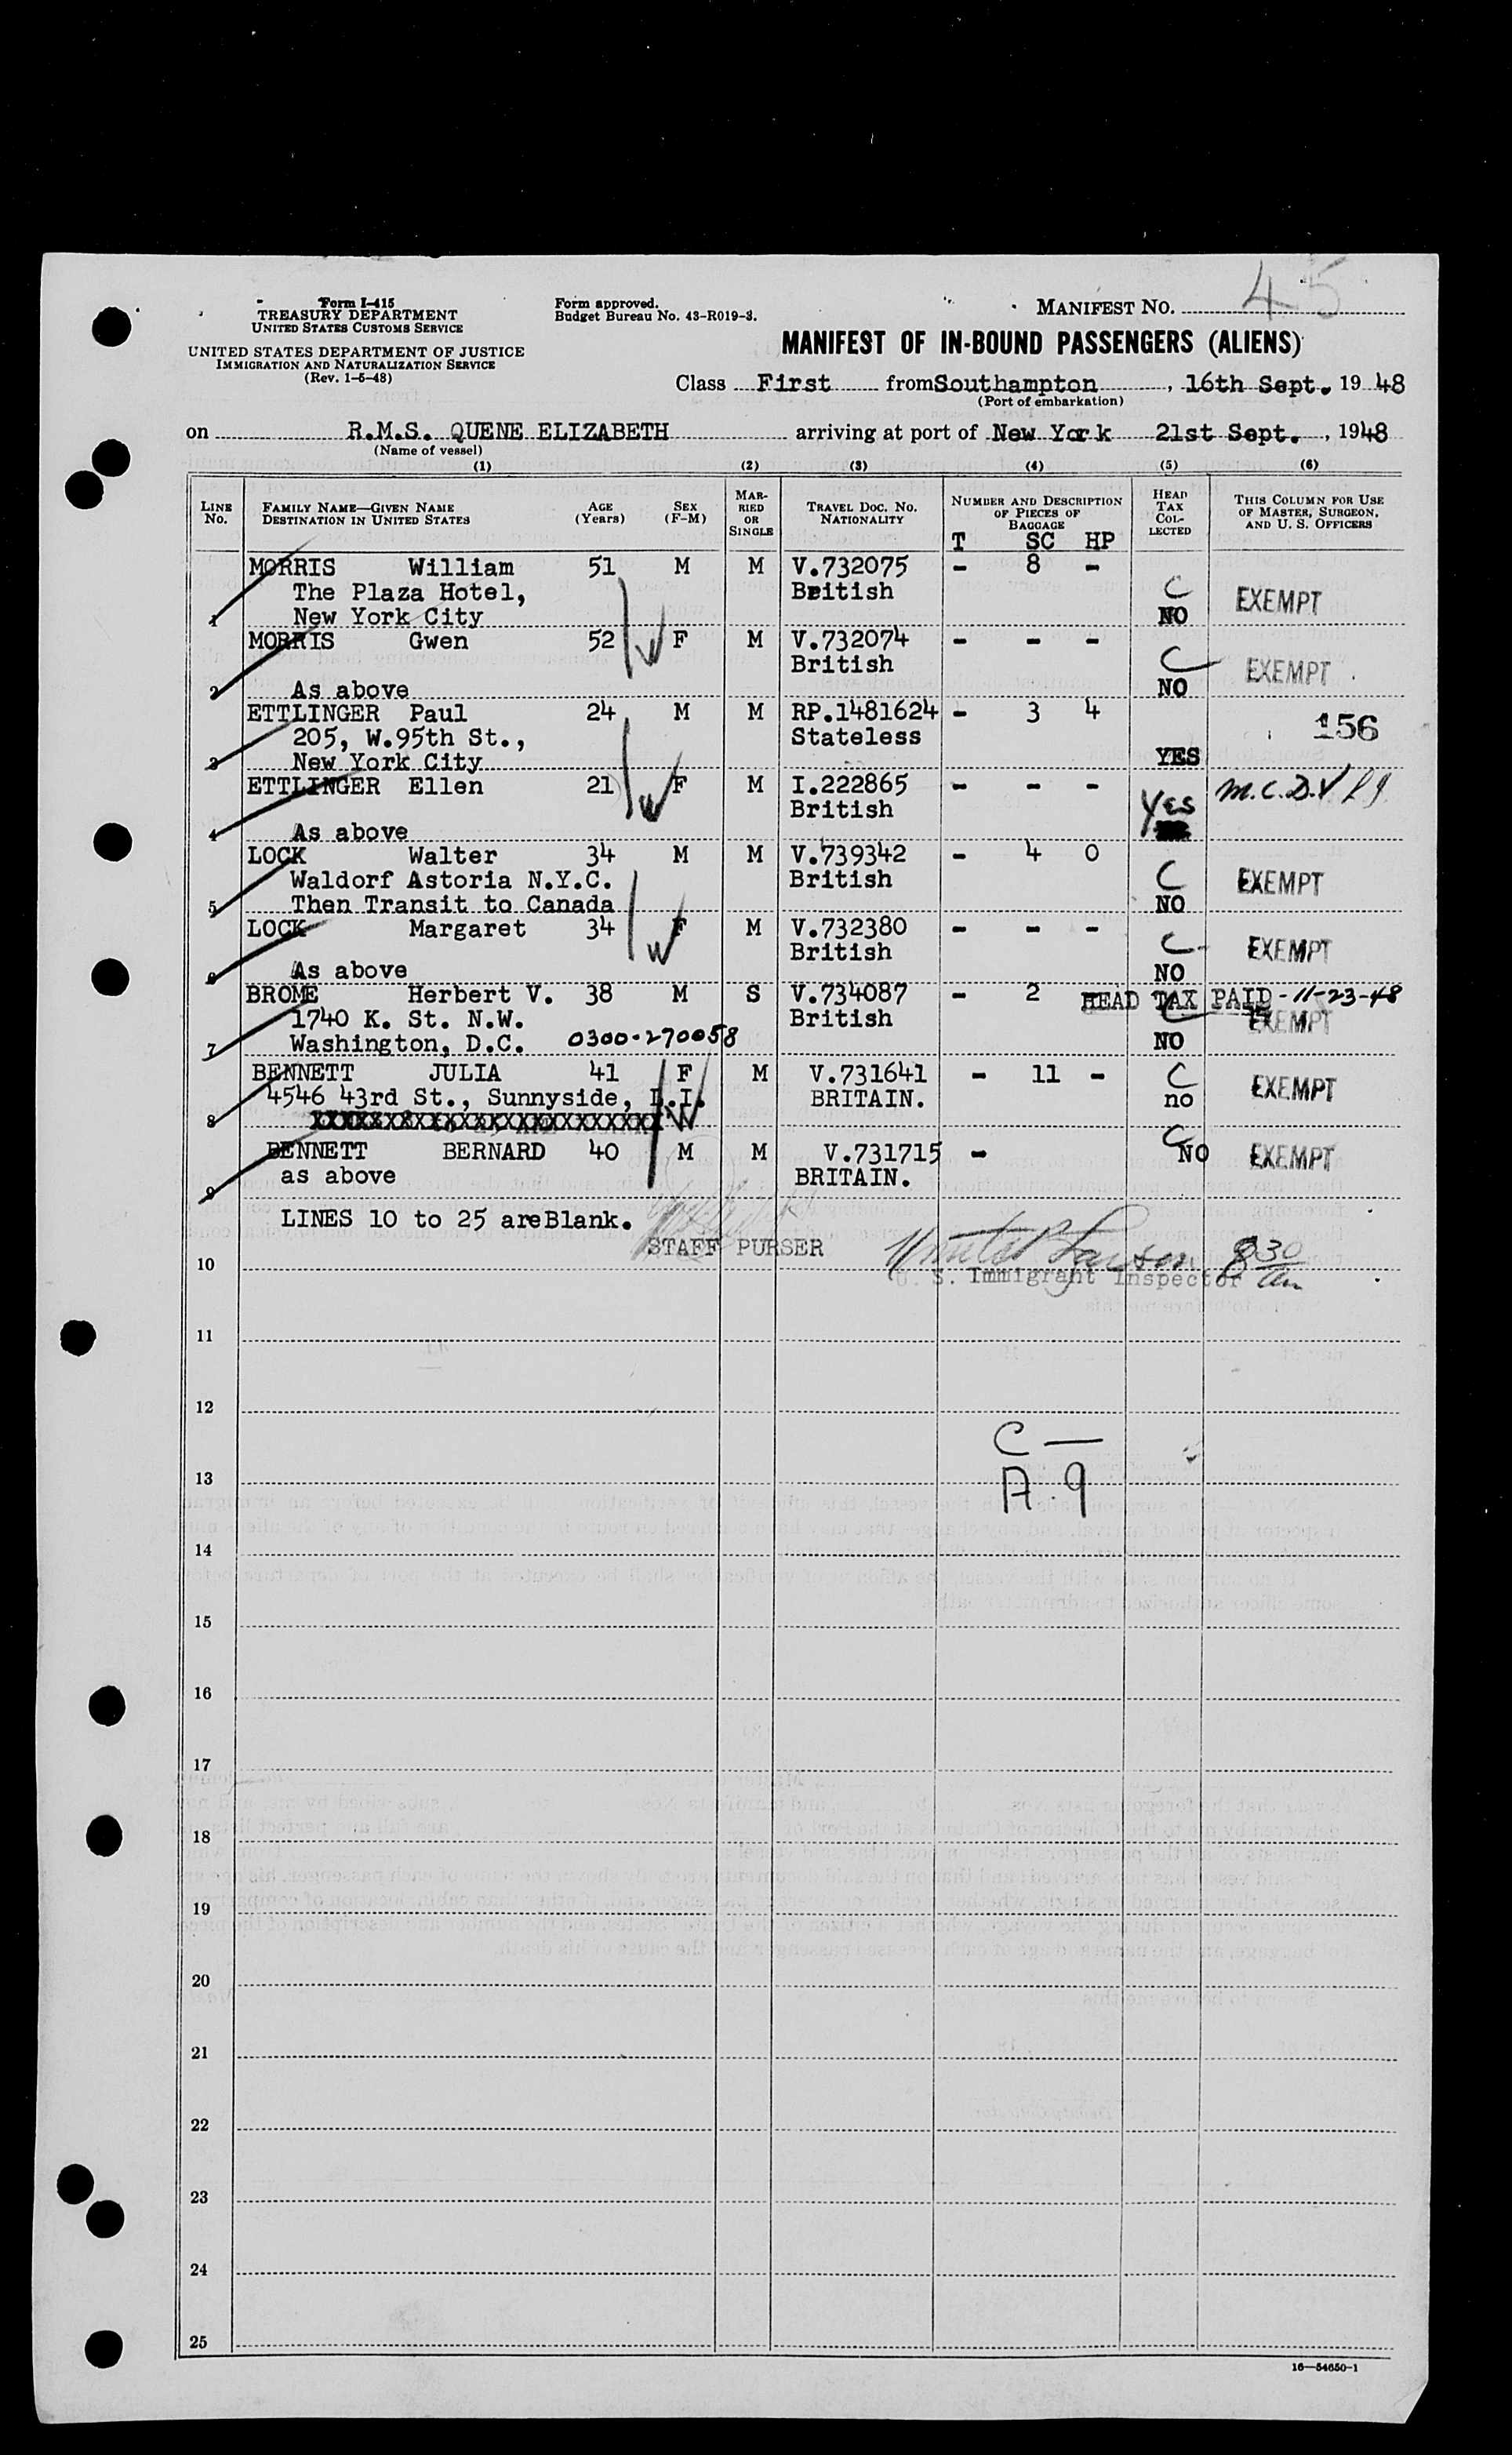 45
Form I-415
TREASURY DEPARTMENT
UNITED STATES CUSTOMS SERVICE
UNITED STATES DEPARTMENT OF JUSTICE
IMMIGRATION AND NATURALIZATION SERVICE
(Rev. 1-5-48)
Form approved.
Budget Bureau No. 43-R019-3.
MANIFEST NO.
MANIFEST OF IN-BOUND PASSENGERS (ALIENS)
Class First from Southampton, 16th Sept. 1948
(Port of embarkation)
on R.M.S. QUENE ELIZABETH arriving at port of New York 21st Sept., 1948
(Name of vessel)
(1) (2) (3) (4) (5) (6)
LINE No.
FAMILY NAME—GIVEN NAME
DESTINATION IN UNITED STATES
AGE (Years)
SEX (F-M)
MARRIED OR SINGLE
TRAVEL DOC. NO. NATIONALITY
NUMBER AND DESCRIPTION OF PIECES OF BAGGAGE
T SC HP
HEAD TAX COLLECTED
THIS COLUMN FOR USE OF MASTER, SURGEON, AND U. S. OFFICERS
MORRIS William 51 M M V.732075 - 8 -
The Plaza Hotel, British C EXEMPT
1 New York City NO
MORRIS Gwen 52 W F M V.732074 - - -
British C EXEMPT
2 As above NO
ETTLINGER Paul 24 M M RP.1481624 - 3 4
205, W.95th St., Stateless 156
3 New York City YES
ETTLINGER Ellen 21 W F M I.222865 - - - m.c.D.V
British Yes
4 As above
LOCK Walter 34 M M V.739342 - 4 0
Waldorf Astoria N.Y.C. British C EXEMPT
5 Then Transit to Canada NO
LOCK Margaret 34 W F M V.732380 - - -
British C EXEMPT
6 As above NO
BROME Herbert V. 38 M S V.734087 - 2 HEAD TAX PAID - 11-23-48
1740 K. St. N.W. British C EXEMPT
7 Washington, D.C. 0300-270058 NO
BENNETT JULIA 41 F M V.731641 - 11 - C EXEMPT
4546 43rd St., Sunnyside, L.I. BRITAIN. no
8 XXXXXXXXXXXXXXXXXXXXXXXX W
BENNETT BERNARD 40 M M V.731715 - C NO EXEMPT
as above BRITAIN.
9
LINES 10 to 25 areBlank.
STAFF PURSER
Larson 8 30 am
U. S. Immigrant Inspector
10
11
12
C —
A. 9
13
14
15
16
17
18
19
20
21
22
23
24
25
16—54650-1